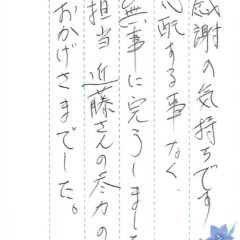 感謝の気持ちです
心配する事なく、
無事に完うしました
担当 近藤さんの尽力の
おかげさまでした。